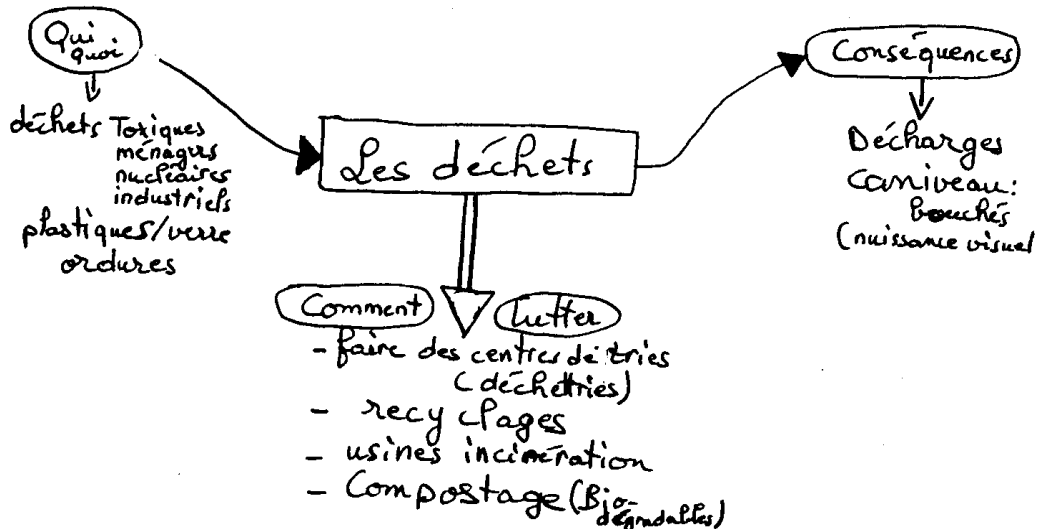 Qui
quoi
déchets Toxiques
ménagers
nucléaires
industriels
plastiques/verre
ordures
Les déchets
Conséquences
Décharges
Caniveau:
bouchés
(nuissance visuel
Comment lutter
- faire des centres de tries
(déchettries)
- recyclages
- usines incinération
- Compostage (Bio-
dégradables)